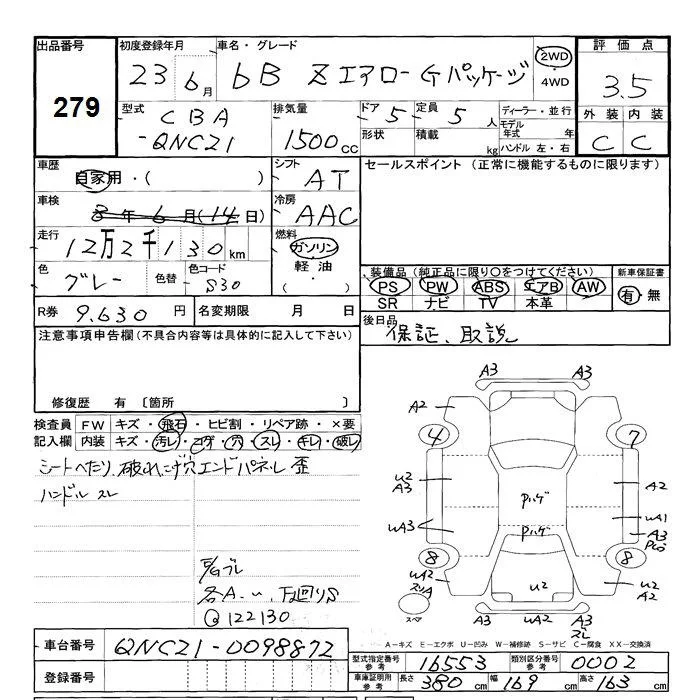 出品番号
279
初度登録年月
23年 6月
車名・グレード
bB Zエアロ-Gパッケージ
2WD
・4WD
評価点
3.5
外装 内装
C C
型式
CBA
-QNC21
排気量
1500cc
ドア 5
定員 5人
形状
積載 kg
ディーラー・並行
モデル年式 年
ハンドル 左・右
車歴
自家用・( )
シフト
AT
セールスポイント (正常に機能するものに限ります)
車検
8年6月(14日)
冷房
AAC
走行
12万2千130km
燃料
ガソリン
軽油
・( )
色
グレー
色替
色コード
S30
装備品 (純正品に限り〇をつけてください)
PS PW ABS エアB AW
SR ナビ TV 本革
新車保証書
有・無
R券 9.630円
名変期限 月 日
後日品
保証、取説
注意事項申告欄(不具合内容等は具体的に記入して下さい)
修復歴 有 〔箇所 〕
検査員記入欄
FW キズ・飛石・ヒビ割・リペア跡・×要
内装 キズ・汚レ・コゲ・穴・スレ・キレ・破レ
シートへたり、破れ、こげ穴 エンドパネル歪
ハンドルスレ
各A.u、下回りS
Q 122130
A3 A3
A2
4 7
U2
A3
A2
Pハゲ
UA3
UA1
Pハゲ
A3
8 8
UA2
U2
UA2
A2
スペア
A3 UA2 A3
スレ
A-キズ E-エクボ U-凹み W-補修跡 S-サビ C-腐食 XX-交換済
車台番号 QNC21-0098872
登録番号
型式指定番号 参考 16553
類別区分番号 参考 0002
車庫証明用 参考 長さ 380cm 幅 169cm 高さ 163cm